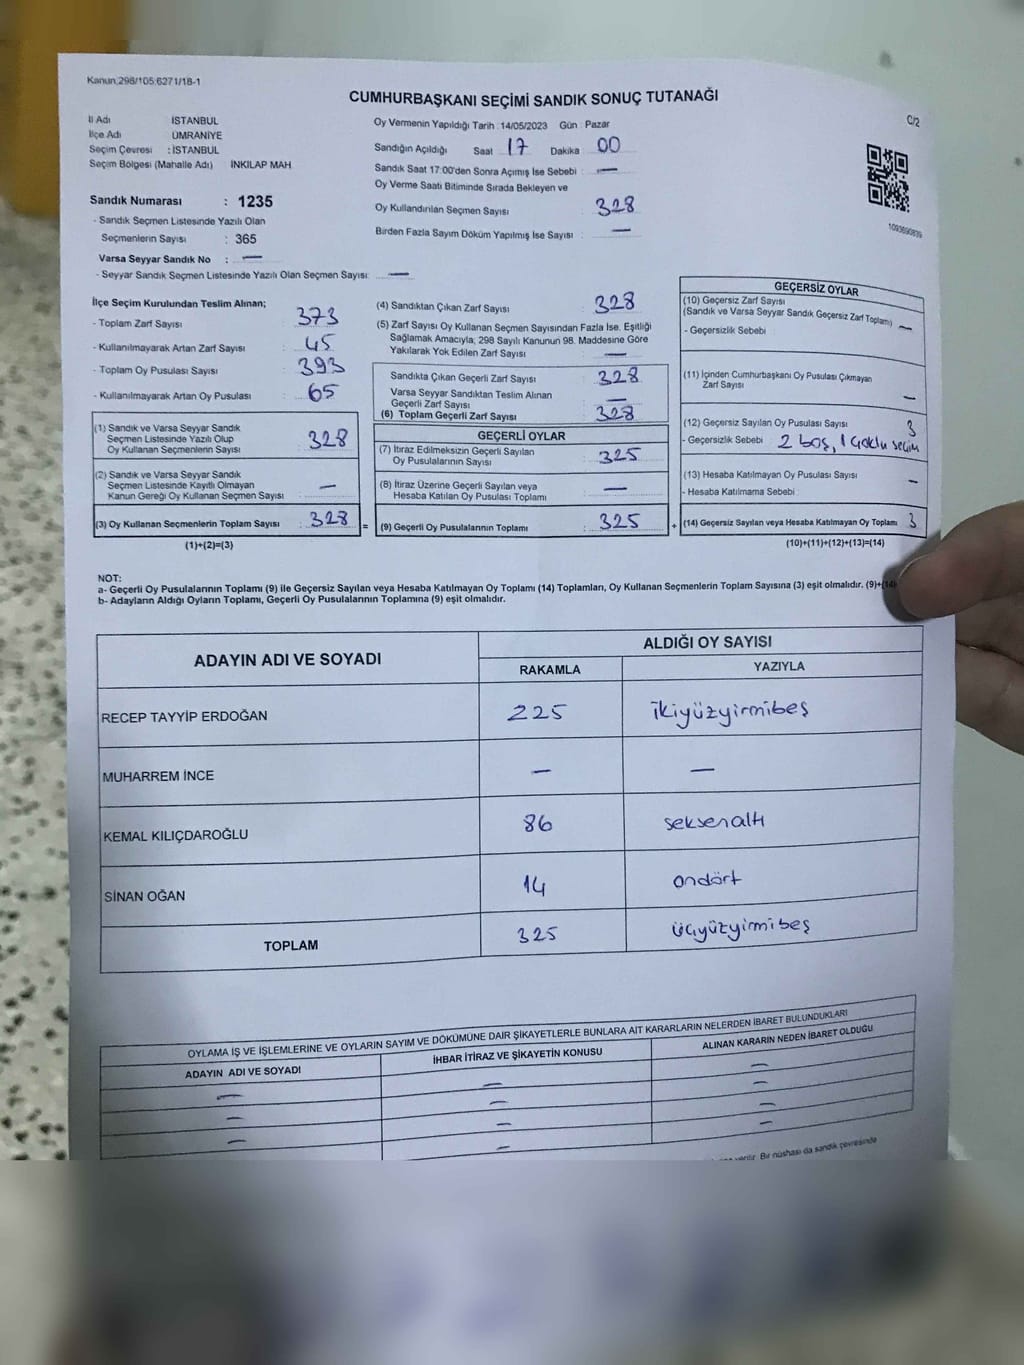 Kanun;298/105;6271/18-1
CUMHURBAŞKANI SEÇİMİ SANDIK SONUÇ TUTANAĞI
C/2
İl Adı İSTANBUL
İlçe Adı ÜMRANİYE
Seçim Çevresi : İSTANBUL
Seçim Bölgesi (Mahalle Adı) İNKILAP MAH
Sandık Numarası : 1235
- Sandık Seçmen Listesinde Yazılı Olan
Seçmenlerin Sayısı : 365
Varsa Seyyar Sandık No : —
- Seyyar Sandık Seçmen Listesinde Yazılı Olan Seçmen Sayısı: —
Oy Vermenin Yapıldığı Tarih : 14/05/2023 Gün : Pazar
Sandığın Açıldığı Saat 17 Dakika 00
Sandık Saat 17:00'den Sonra Açımış İse Sebebi : —
Oy Verme Saati Bitiminde Sırada Bekleyen ve
Oy Kullandırılan Seçmen Sayısı : 328
Birden Fazla Sayım Döküm Yapılmış İse Sayısı : —
1093690839
İlçe Seçim Kurulundan Teslim Alınan;
- Toplam Zarf Sayısı : 373
- Kullanılmayarak Artan Zarf Sayısı : 45
- Toplam Oy Pusulası Sayısı : 393
- Kullanılmayarak Artan Oy Pusulası : 65
(1) Sandık ve Varsa Seyyar Sandık
Seçmen Listesinde Yazılı Olup
Oy Kullanan Seçmenlerin Sayısı : 328
(2) Sandık ve Varsa Seyyar Sandık
Seçmen Listesinde Kayıtlı Olmayan
Kanun Gereği Oy Kullanan Seçmen Sayısı : —
(3) Oy Kullanan Seçmenlerin Toplam Sayısı : 328 =
(1)+(2)=(3)
(4) Sandıktan Çıkan Zarf Sayısı : 328
(5) Zarf Sayısı Oy Kullanan Seçmen Sayısından Fazla İse, Eşitliği
Sağlamak Amacıyla; 298 Sayılı Kanunun 98. Maddesine Göre
Yakılarak Yok Edilen Zarf Sayısı : —
Sandıkta Çıkan Geçerli Zarf Sayısı : 328
Varsa Seyyar Sandıktan Teslim Alınan
Geçerli Zarf Sayısı : —
(6) Toplam Geçerli Zarf Sayısı : 328
GEÇERLİ OYLAR
(7) İtiraz Edilmeksizin Geçerli Sayılan
Oy Pusulalarının Sayısı : 325
(8) İtiraz Üzerine Geçerli Sayılan veya
Hesaba Katılan Oy Pusulası Toplamı : —
(9) Geçerli Oy Pusulalarının Toplamı : 325 +
GEÇERSİZ OYLAR
(10) Geçersiz Zarf Sayısı
(Sandık ve Varsa Seyyar Sandık Geçersiz Zarf Toplamı) —
- Geçersizlik Sebebi :
(11) İçinden Cumhurbaşkanı Oy Pusulası Çıkmayan
Zarf Sayısı —
(12) Geçersiz Sayılan Oy Pusulası Sayısı : 3
- Geçersizlik Sebebi 2 boş, 1 çoklu seçim
(13) Hesaba Katılmayan Oy Pusulası Sayısı —
- Hesaba Katılmama Sebebi :
(14) Geçersiz Sayılan veya Hesaba Katılmayan Oy Toplamı 3
(10)+(11)+(12)+(13)=(14)
NOT:
a- Geçerli Oy Pusulalarının Toplamı (9) ile Geçersiz Sayılan veya Hesaba Katılmayan Oy Toplamı (14) Toplamları, Oy Kullanan Seçmenlerin Toplam Sayısına (3) eşit olmalıdır. (9)+(14)
b- Adayların Aldığı Oyların Toplamı, Geçerli Oy Pusulalarının Toplamına (9) eşit olmalıdır.
ADAYIN ADI VE SOYADI ALDIĞI OY SAYISI
RAKAMLA YAZIYLA
RECEP TAYYİP ERDOĞAN 225 ikiyüzyirmibeş
MUHARREM İNCE — —
KEMAL KILIÇDAROĞLU 86 seksenaltı
SİNAN OĞAN 14 ondört
TOPLAM 325 üçyüzyirmibeş
OYLAMA İŞ VE İŞLEMLERİNE VE OYLARIN SAYIM VE DÖKÜMÜNE DAİR ŞİKAYETLERLE BUNLARA AİT KARARLARIN NELERDEN İBARET BULUNDUKLARI
ADAYIN ADI VE SOYADI İHBAR İTİRAZ VE ŞİKAYETİN KONUSU ALINAN KARARIN NEDEN İBARET OLDUĞU
— — —
— — —
— — —
— —
verilir. Bir nüshası da sandık çevresinde